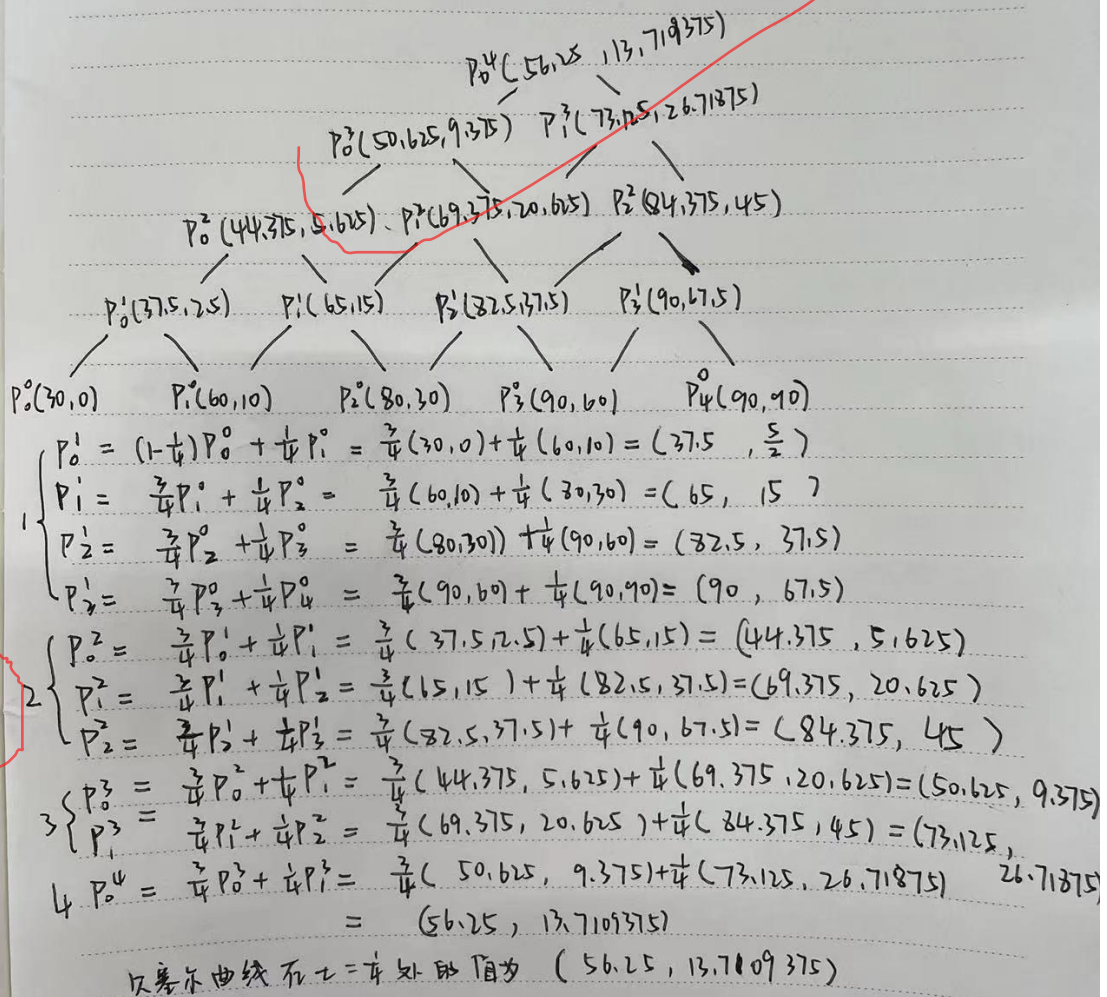 P₀⁴(56.25, 13.719375)
P₀³(50.625, 9.375) P₁³(73.125, 26.71875)
P₀²(44.375, 5.625)、P₁²(69.375, 20.625) P₂²(84.375, 45)
P₀¹(37.5, 2.5) P₁¹(65, 15) P₂¹(82.5, 37.5) P₃¹(90, 67.5)
P₀⁰(30, 0) P₁⁰(60, 10) P₂⁰(80, 30) P₃⁰(90, 60) P₄⁰(90, 90)
1 { P₀¹ = (1-1/4)P₀⁰ + 1/4 P₁⁰ = 3/4(30, 0) + 1/4(60, 10) = (37.5, 5/2)
P₁¹ = 3/4 P₁⁰ + 1/4 P₂⁰ = 3/4(60, 10) + 1/4(80, 30) = (65, 15)
P₂¹ = 3/4 P₂⁰ + 1/4 P₃⁰ = 3/4(80, 30)) + 1/4(90, 60) = (82.5, 37.5)
P₂¹ = 3/4 P₃⁰ + 1/4 P₄⁰ = 3/4(90, 60) + 1/4(90, 90) = (90, 67.5)
2 { P₀² = 3/4 P₀¹ + 1/4 P₁¹ = 3/4(37.5, 2.5) + 1/4(65, 15) = (44.375, 5.625)
P₁² = 3/4 P₁¹ + 1/4 P₂¹ = 3/4(65, 15) + 1/4(82.5, 37.5) = (69.375, 20.625)
P₂² = 3/4 P₂¹ + 1/4 P₃¹ = 3/4(82.5, 37.5) + 1/4(90, 67.5) = (84.375, 45)
3 { P₀³ = 3/4 P₀² + 1/4 P₁² = 3/4(44.375, 5.625) + 1/4(69.375, 20.625) = (50.625, 9.375)
P₁³ = 3/4 P₁² + 1/4 P₂² = 3/4(69.375, 20.625) + 1/4(84.375, 45) = (73.125,
26.71875)
4 P₀⁴ = 3/4 P₀³ + 1/4 P₁³ = 3/4(50.625, 9.375) + 1/4(73.125, 26.71875)
= (56.25, 13.7109375)
贝塞尔曲线在 t = 1/4 处的值为 (56.25, 13.7109375)